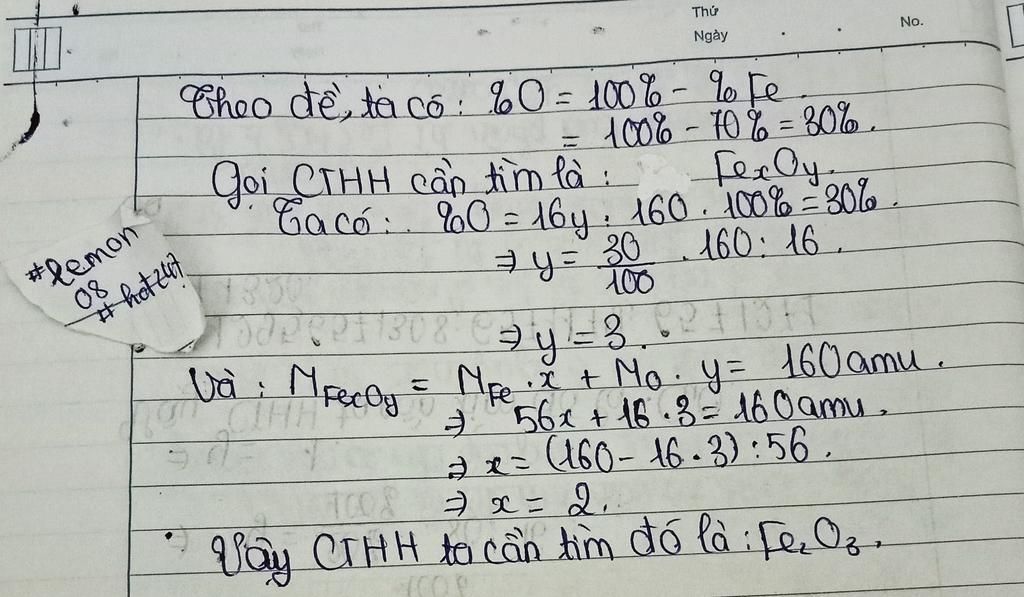 Thứ
Ngày
No.
Theo đề, ta có: %O = 100% - % Fe
= 100% - 70% = 30%.
Gọi CTHH cần tìm là: FexOy.
Ta có: %O = 16y : 160 . 100% = 30%.
⇒ y = 30/100 . 160 : 16.
#lemon
08
#hot247
⇒ y = 3.
Và: MFexOy = MFe . x + MO . y = 160 amu.
⇒ 56x + 16 . 3 = 160 amu.
⇒ x = (160 - 16 . 3) : 56.
⇒ x = 2.
Vậy CTHH ta cần tìm đó là: Fe2O3.